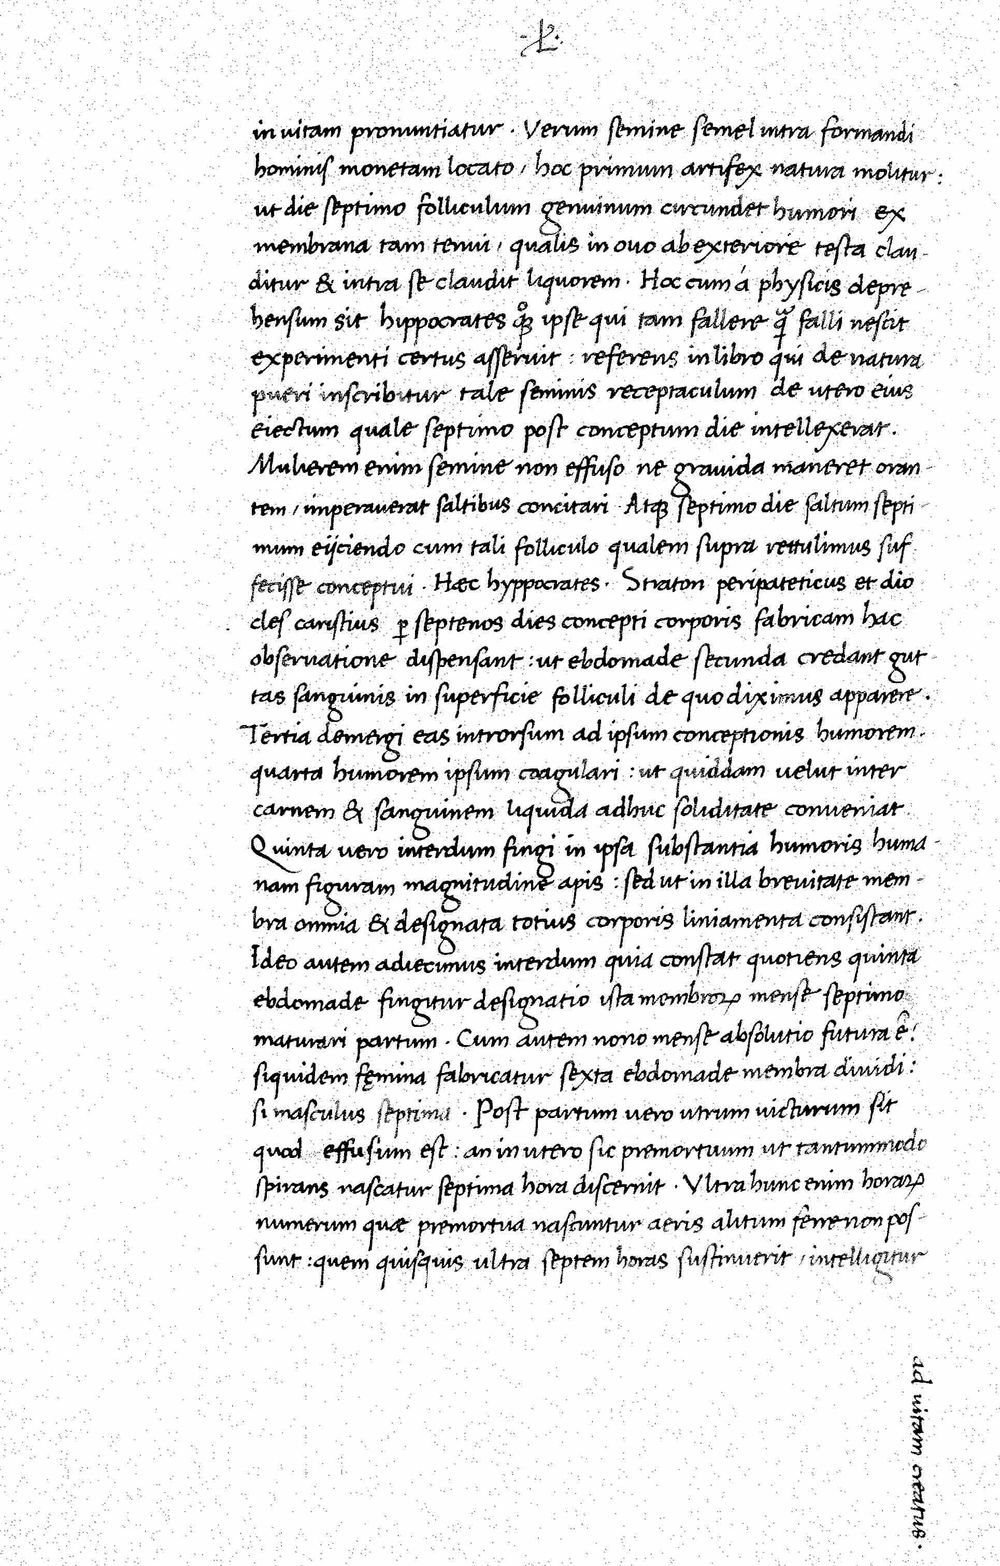 in uitam pronuntiatur · Verum semine semel intra formandi
hominis monetam locato / hoc primum artifex natura molitur :
ut die septimo folliculum genuinum circundet humori ex
membrana tam tenui / qualis in ouo ab exteriore testa clau-
ditur & intra se claudit liquorem · Hoc cum á physicis depre-
hensum sit hippocrates ipse qui tam fallere falli nescit
experimenti certus asseruit : referens in libro qui de natura
pueri inscribitur tale seminis receptaculum de utero eius
eiectum quale septimo post conceptum die intellexerat .
Mulierem enim semine non effuso ne grauida maneret oran-
tem / imperauerat saltibus concitari · Atqꝫ septimo die saltum septi-
mum eijciendo cum tali folliculo qualem supra rettulimus suf-
fecisse conceptui · Hæc hyppocrates · Straton peripateticus et dio
cles caristius ꝑ septenos dies concepti corporis fabricam hac
obseruatione dispensant : ut ebdomade secunda credant gut-
tas sanguinis in superficie folliculi de quo diximus apparere .
Tertia demergi eas introrsum ad ipsum conceptionis humorem .
quarta humorem ipsum coagulari : ut quiddam uelut inter
carnem & sanguinem liquida adhuc soliditate conueniat .
Quinta uero interdum fingi in ipsa substantia humoris huma-
nam figuram magnitudine apis : sed ut in illa breuitate mem-
bra omnia & designata totius corporis liniamenta consistant .
Ideo autem adiecimus interdum quia constat quotiens quinta
ebdomade fingitur designatio ista membroꝝ mense septimo
maturari partum · Cum autem nono mense absolutio futura ē :
siquidem fęmina fabricatur sexta ebdomade membra diuidi :
si masculus septima · Post partum uero utrum uicturum sit
quod effusum est : an in utero sic premortuum ut tantummodo
spirans nascatur septima hora discernit · Vltra hunc enim horaꝝ
numerum quæ premortua nascuntur aeris alitum ferre non pos-
sunt : quem quisquis ultra septem horas sustinuerit / intelligitur
ad uitam creatus .